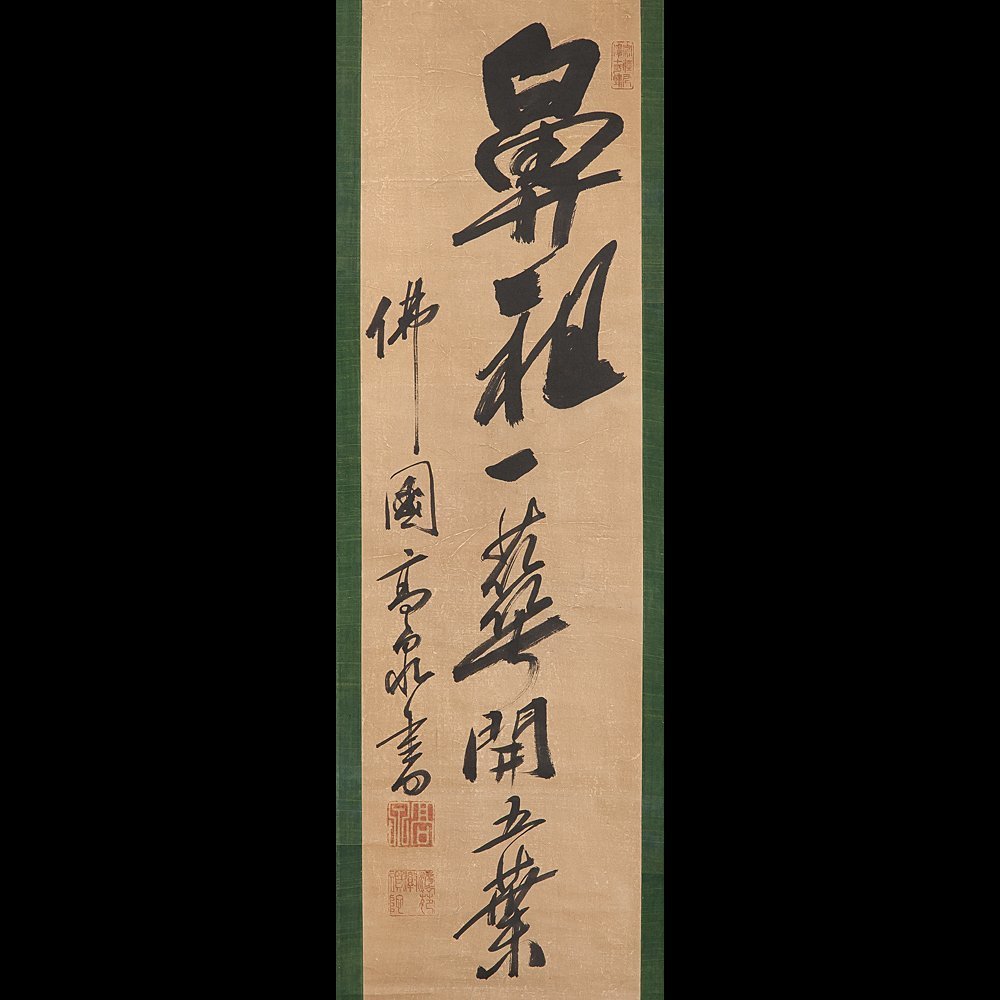 鼻祖一華開五葉
佛國高泉書